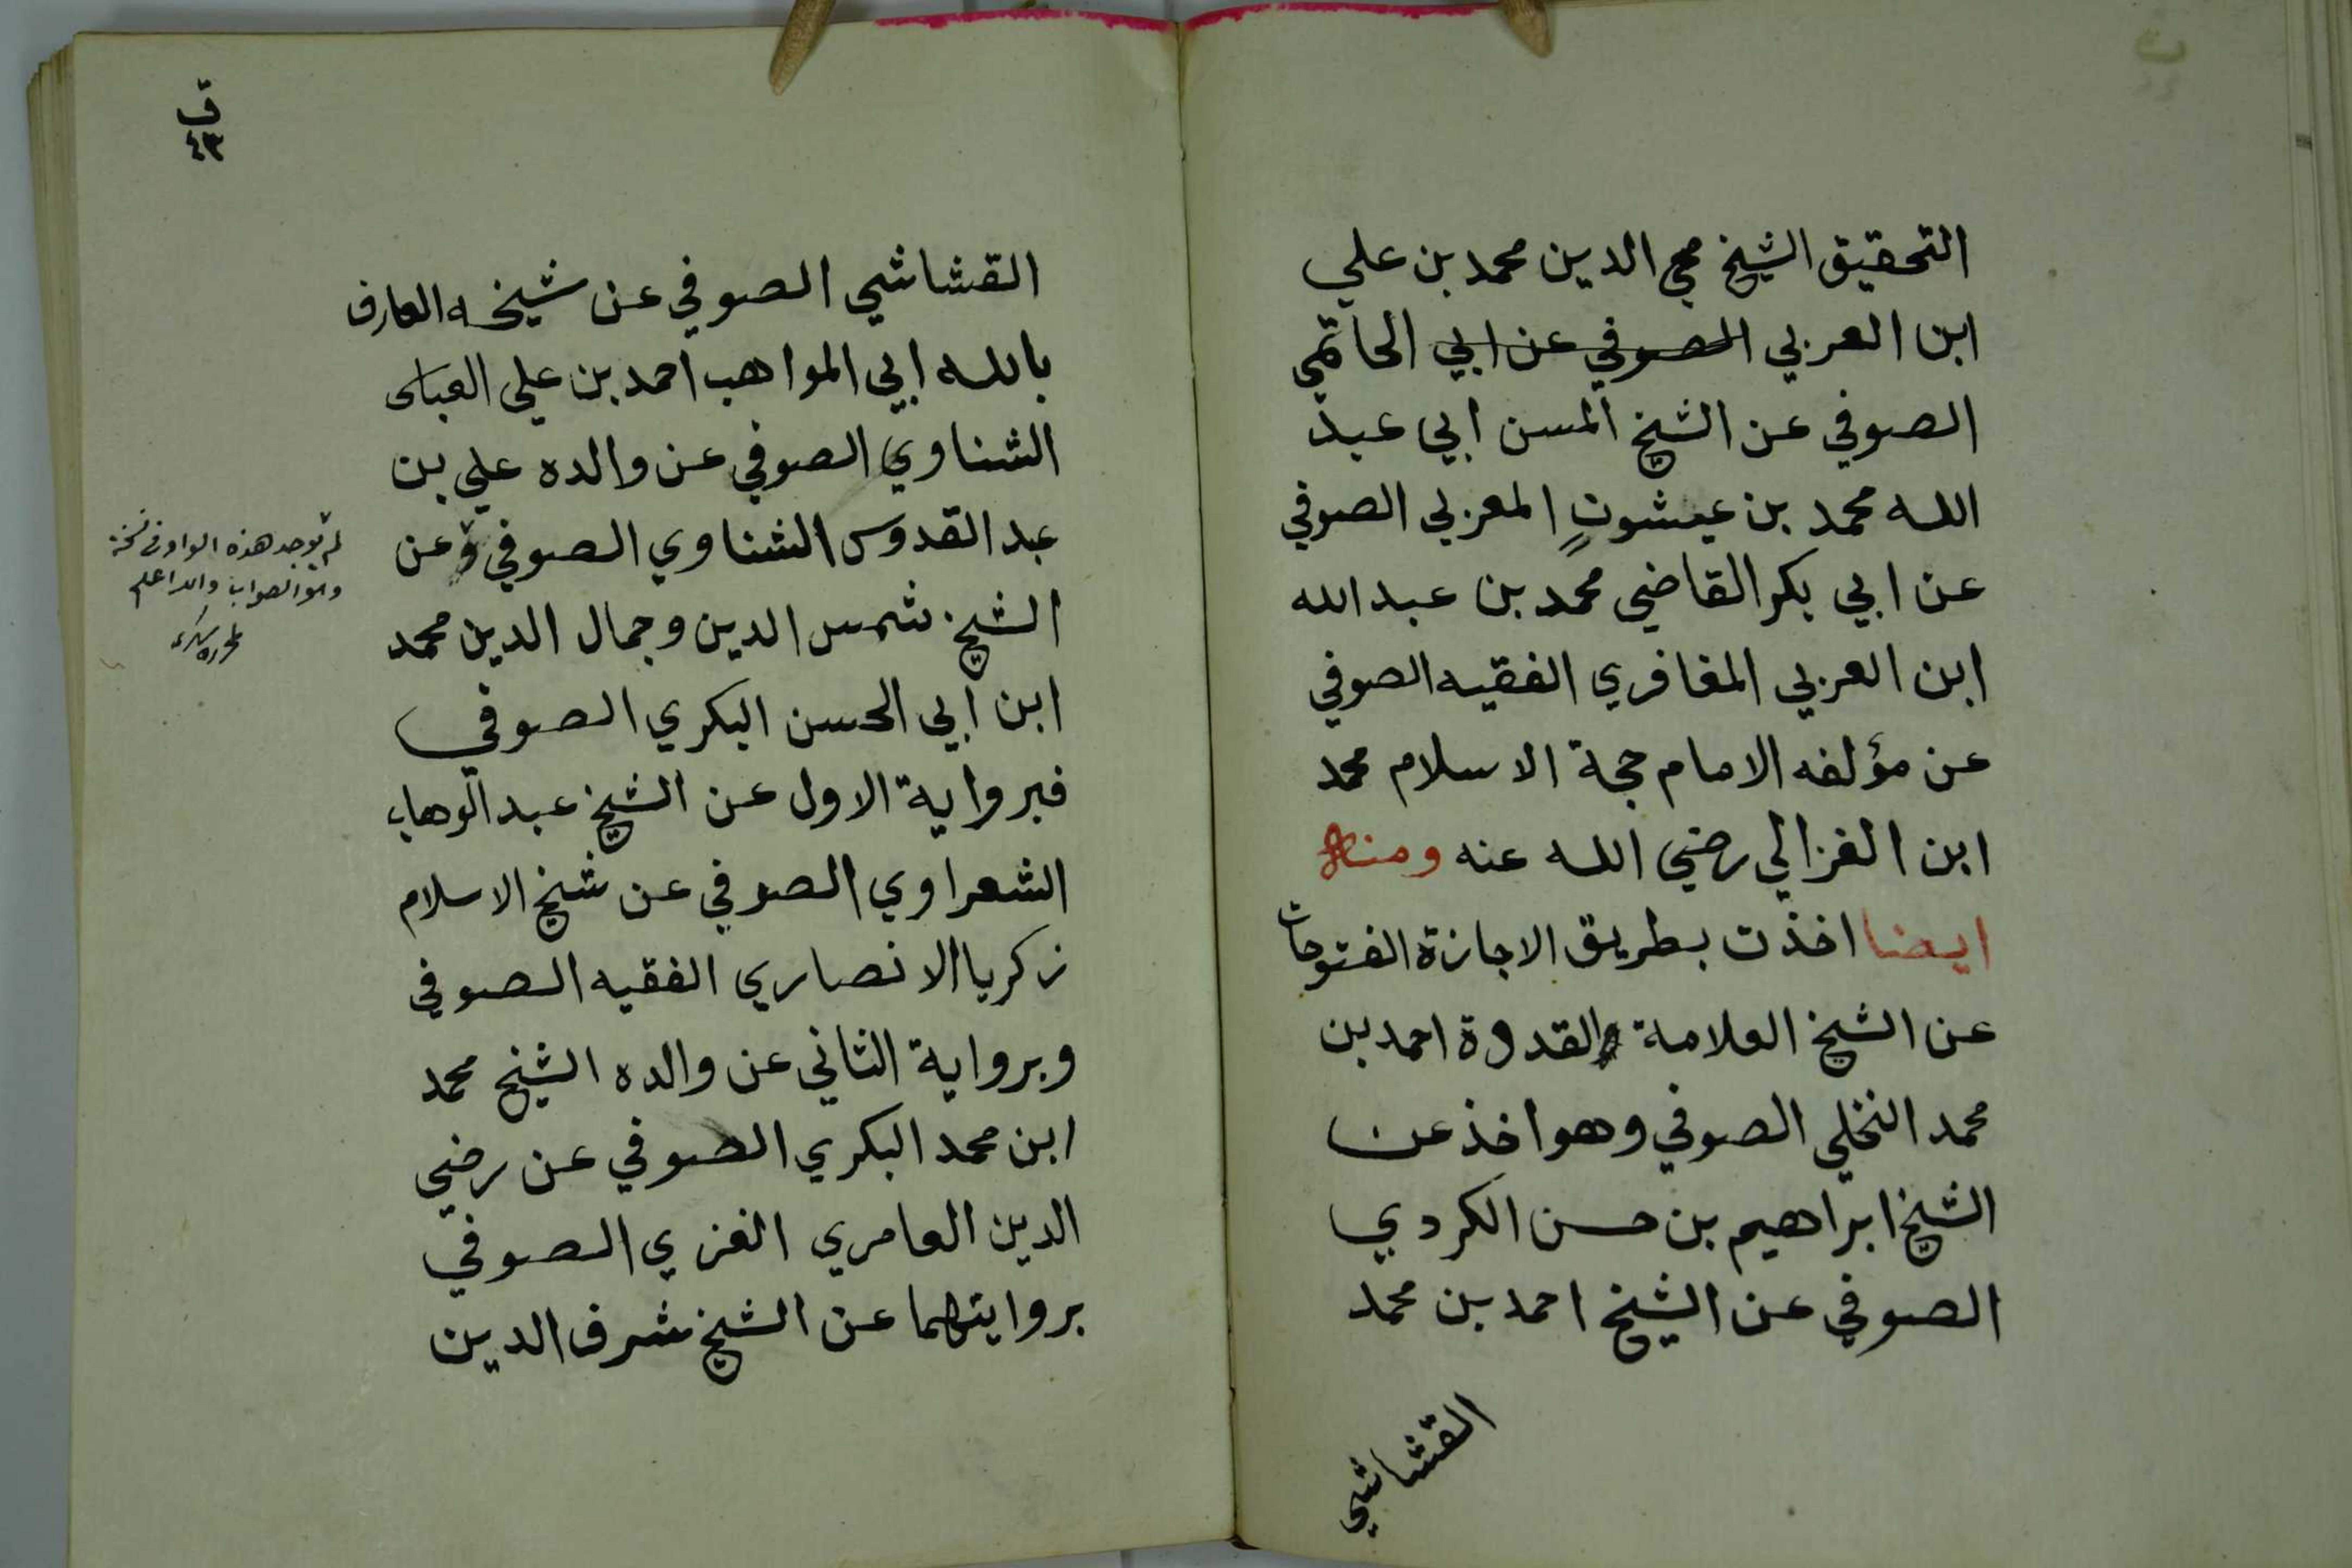 التحقيق الشيخ محي الدين محمد بن علي
ابن العربي الصوفي عن ابي الحاتمي
الصوفي عن الشيخ المسن ابي عبد
الله محمد بن عيشون المغربي الصوفي
عن ابي بكر القاضي محمد بن عبد الله
ابن العربي المغافري الفقيه الصوفي
عن مؤلفه الامام حجة الاسلام محمد
ابن الغزالي رضي الله عنه ومنها
ايضا اخذت بطريق الاجازة الفتوحات
عن الشيخ العلامة والقدوة احمد بن
محمد النخلي الصوفي وهو اخذ عن
الشيخ ابراهيم بن حسن الكردي
الصوفي عن الشيخ احمد بن محمد
القشاشي
ق
٤٣
القشاشي الصوفي عن شيخه العارف
بالله ابي المواهب احمد بن علي العباسى
الشناوي الصوفي عن والده علي بن
عبد القدوس الشناوي الصوفي وعن
الشيخ شمس الدين وجمال الدين محمد
ابن ابي الحسن البكري الصوفي
فبرواية الاول عن الشيخ عبد الوهاب
الشعراوي الصوفي عن شيخ الاسلام
زكريا الانصاري الفقيه الصوفي
وبرواية الثاني عن والده الشيخ محمد
ابن محمد البكري الصوفي عن رضي
الدين العامري الغزي الصوفي
بروايتهما عن الشيخ شرف الدين
لم توجد هذه الواو في نسخة
وهو الصواب والله اعلم